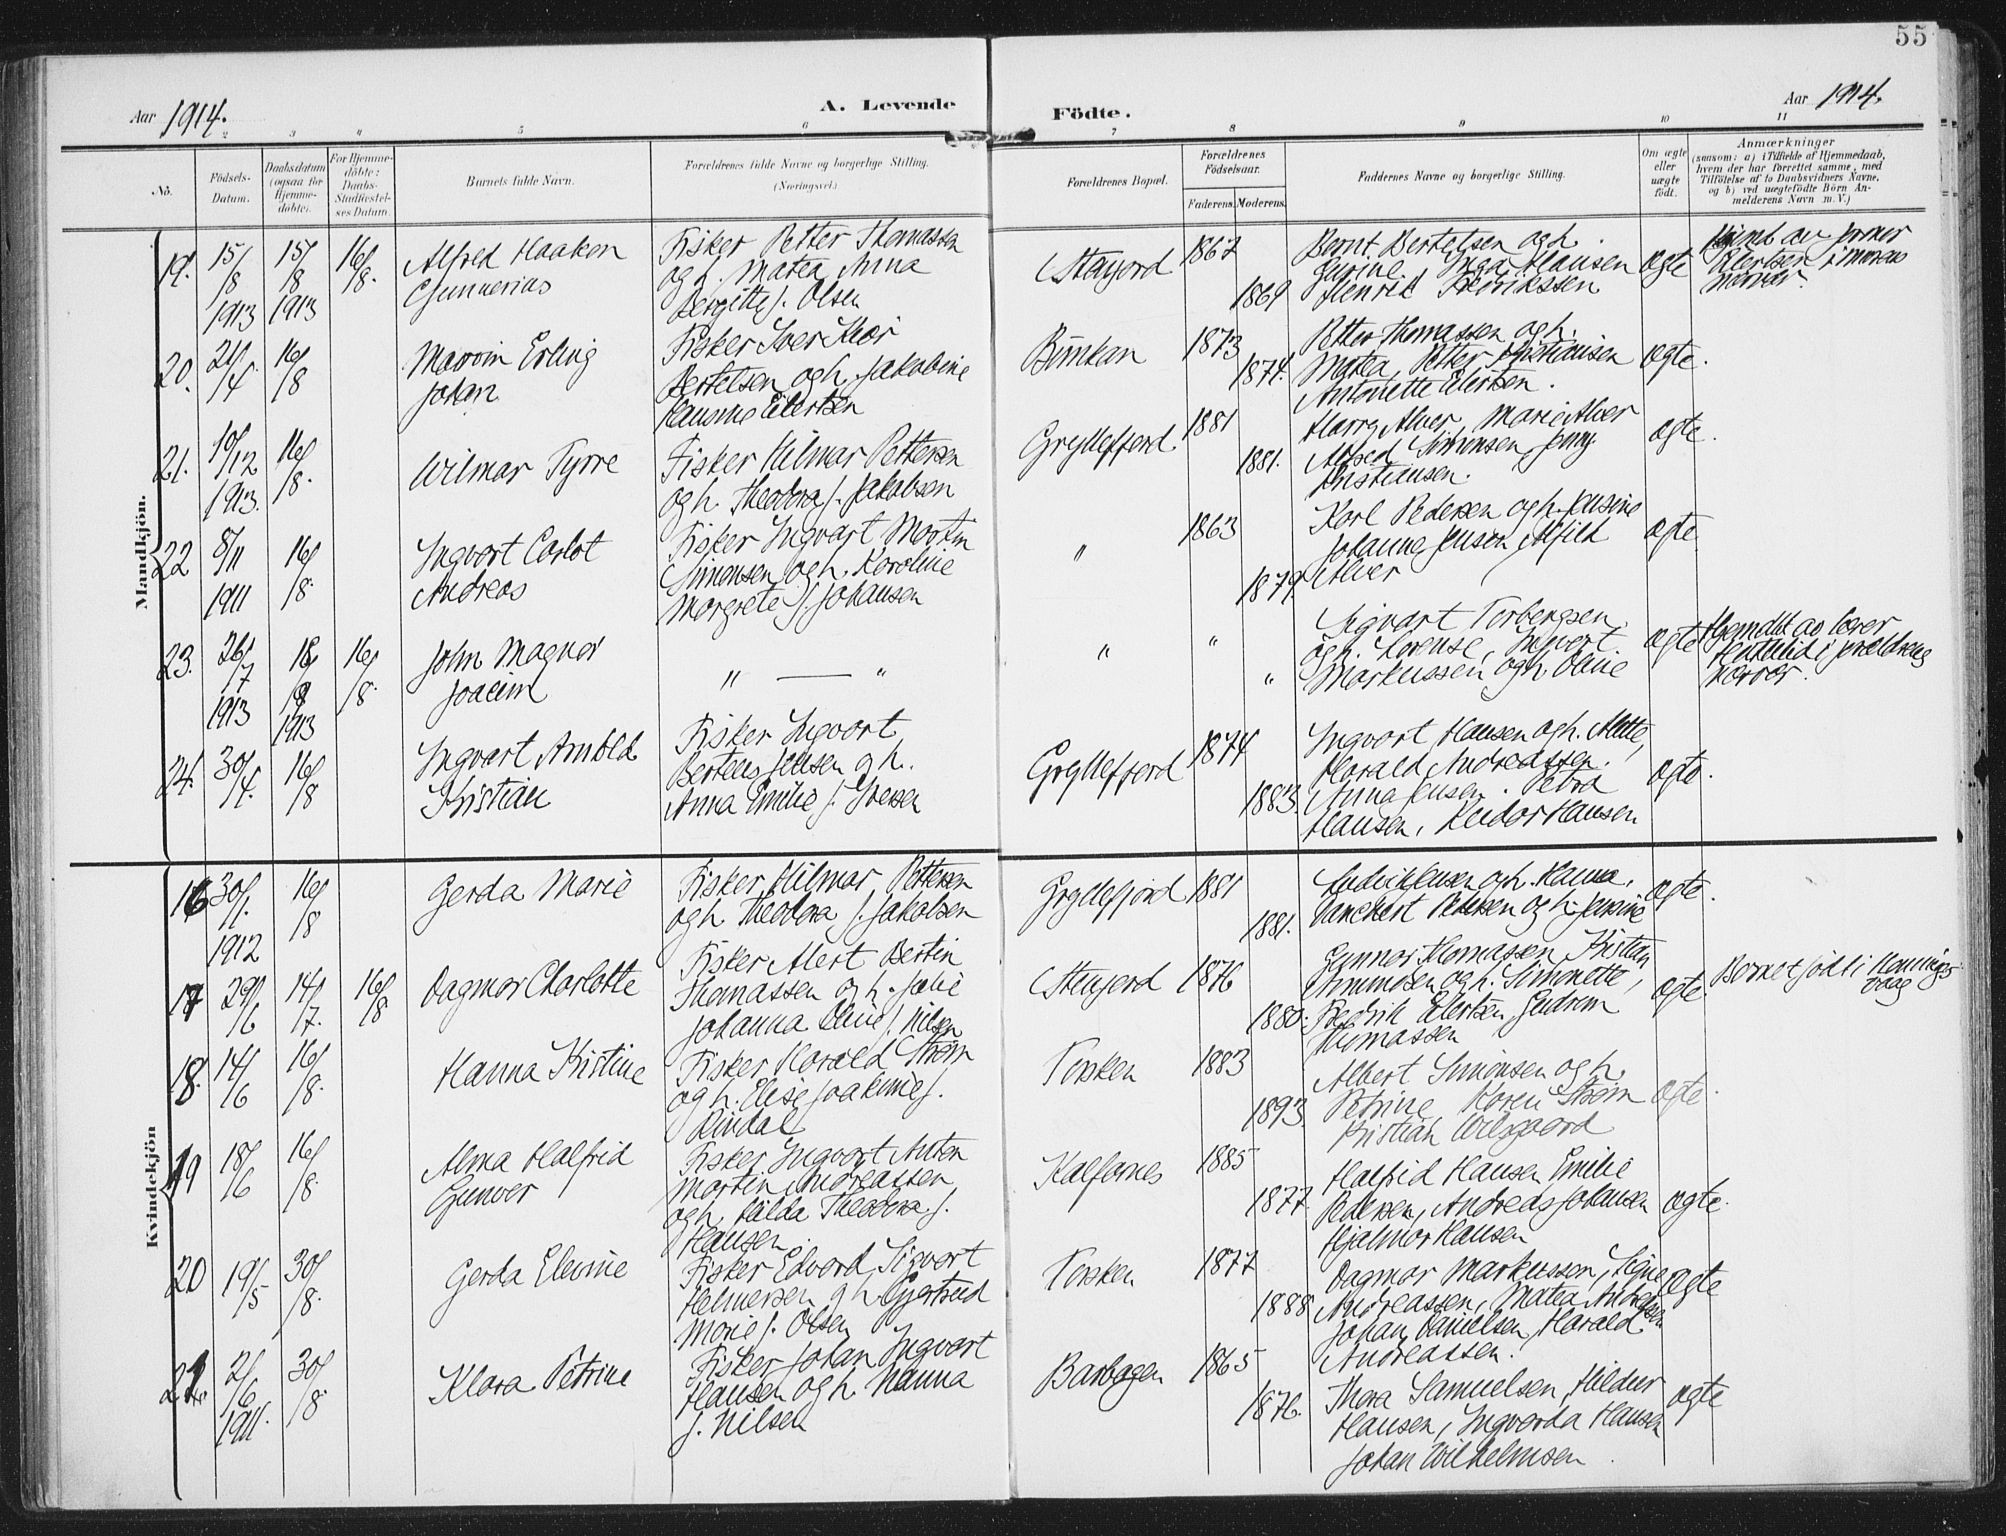 55
Aar 1914.
A. Levende
Födte.
Aar 1914.
2 3 4 5 6 7 8 9 10 11
No.
Födsels-
Datum.
Daabsdatum
(ogsaa for
Hjemme-
döbte).
For Hjemme-
döbte:
Daabs-
Stadfæstel-
ses Datum.
Barnets fulde Navn.
Forældrenes fulde Navne og borgerlige Stilling.
(Næringsvei.)
Forældrenes Bopæl.
Forældrenes
Födselsaar.
Faderens. Moderens.
Faddernes Navne og borgerlige Stilling.
Om ægte
eller
uægte
födt.
Anmærkninger
(saasom: a) i Tilfælde af Hjemmedaab,
hvem der har forrettet samme, med
Tilföielse af to Daabsvidners Navne,
og b) ved uægtefödte Börn An-
melderens Navn m.V.)
Mandkjön.
19. 15/8 1913 15/8 1913 16/8.
Alfred Haakon
Gunnerius
Fisker Petter Thomassen
og h. Matea Anna
Bergitte f. Olsen
1867
1869
Bernt Bertelsen og h.
Gurine, Inga Hansen
Henrik Fredrikssen
ægte
Eilertsen i morens
nærvær.
20. 21/4. 16/8
Marvin Erling
Johan
Fisker Iver Thor
Bertelsen og h. Jakobine
Hansine Eilertsen
Bunkan
1873
1874.
Petter Thomassen og h.
Matea, Petter Kristiansen
Antonette Eilertsen.
ægte.
21. 10/12 1913. 16/8.
Wilmar Tyrre
Fisker Hilmar Pettersen
og h. Theodora f. Jakobsen
Gryllefjord
1881
1881.
Harry Alver, Marie Alver
Alfred Simonsen, Jenny
Kristiansen.
ægte.
22 8/11 1911 16/8.
Ingvart Carlot
Andreas
Fisker Ingvart Martin
Simonsen og h. Karoline
Margrete f. Johansen
"
1863
1879
Karl Pedersen og h. Jensine
Johanne Jenson, Alfild
Alver
ægte.
23. 26/7 1913 18/8 1913 16/8.
John Magnor
Joacim
" — "
"
"
"
Sigvart Torbergsen
og h. Lorense, Ingvert
Markussen og h. Oline
ægte
Hjemdøbt av lærer
i forældrenes
nærvær.
24. 30/4. 16/8
Ingvart Arnold
Kristian
Fisker Ingvart
Berteus Jensen og h.
Anna Emilie f. Iversen
Gryllefjord
1874
1883.
Ingvart Hansen og h. Mette,
Harald Andreassen.
Anna Jensen. Petra
Hansen, Reidar Hansen
ægte.
Kvindekjön
16 30/1. 1912 16/8
Gerda Marie
Fisker Hilmar Pettersen
og h. Theodora f. Jakobsen
Gryllefjord
1881
1881.
Ludvik Jensen og h. Hanna.
Danckert Pedersen og h. Jensine
ægte.
17 29/6 14/7. 16/8
Dagmar Charlotte
Fisker Alert Bertin
Thomassen og h. Julie
Johanna Oline f. Nilsen
1876
1880.
Gunnar Thomassen, Kristian
Simonsen og h. Simonette,
Fredrik Eilertsen, Gudrun
Thomassen
ægte.
Barnet født i Honnings-
vaag
18. 14/6 16/8.
Hanna Kristine
Fisker Harald Strøm
og h. Elise Joakime f.
Rindal
Torsken
1883
1893.
Albert Simonsen og h.
Petrine, Karen Strøm
Kristian Wilsgaard
ægte.
19 18/6 16/8.
Alma Halfrid
Gunver
Fisker Ingvart Anton
Martin Andreassen
og h. Hilda Theodora f.
Hansen.
Kalfarnes
1885
1877.
Halfrid Hansen Emilie
Pedersen, Andreas Johansen
Hjalmar Hansen
ægte.
20 19/5 30/8.
Gerda Elevine
Fisker Edvard Sigvart
Helmersen og h. Gjertrud
Marie f. Olsen
Torsken
1877
1888
Dagmar Markussen, Signe
Andreassen, Matea Andreassen
Johan Danielsen, Harald
Andreassen.
ægte
21. 2/6 1911. 30/8
Klara Petrine
Fisker Johan Ingvart
Hansen og h. Hanna
f. Nilsen
Barbogen
1865
1876.
Thora Samuelsen, Hildur
Hansen, Ingvarda Hansen
Johan Wilhelmsen
ægte